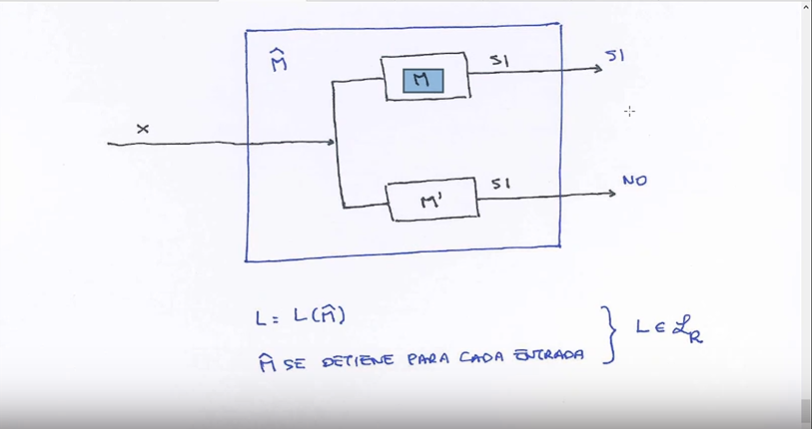 M̂
M
SI
SI
x
M'
SI
NO
L = L(M̂)
M̂ SE DETIENE PARA CADA ENTRADA
L ∈ ℒR